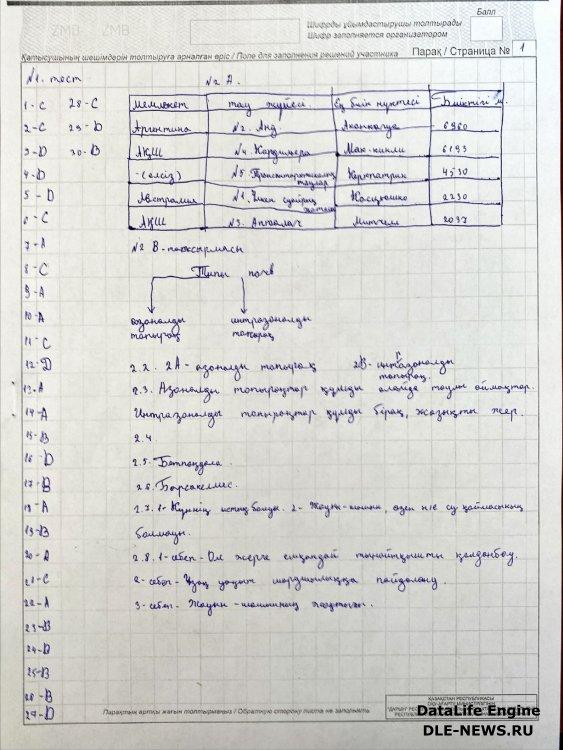 Балл
Шифрды ұйымдастырушы толтырады
Шифр заполняется организатором
Қатысушының шешімдерін толтыруға арналған өріс / Поле для заполнения решений участника
Парақ / Страница № 1
№1. тест
1-C 28-C
2-C 29-D
3-D 30-B
4-D
5-D
6-C
7-A
8-C
9-A
10-A
11-C
12-D
13-A
14-A
15-B
16-D
17-B
18-A
19-B
20-A
21-C
22-A
23-B
24-D
25-B
26-B
27-D
№2 А.
Мемлекет тау жүйесі Ең биік нүктесі Биіктігі м.
Аргентина №2. Анд. Аконкагуа 6960
АҚШ №4. Кордильера Мак-кинли 6193
-(иесіз) №5. Трансантарктикалық таулар Керкпатрик 4530
Австралия №1. Үлкен суайрық жотасы Косцюшко 2230
АҚШ №3. Аппалач Митчелл 2037
№2 В-тапсырмасы
Типы почв
азоналды топырақ
интразоналды топырақ
2.2. 2А - азоналды топырақ 2В - интразоналды топырақ.
2.3. Азоналды топырақтар құмды алайда таулы аймақтар.
Интразоналды топырақтар құмды бірақ, жазықты жер.
2.4
2.5. Бетпақдала.
2.6. Барсакелмес.
2.7. 1- Күннің ыстық болуы. 2- Жауын-шашын, өзен н/е су қоймасының
болмауы.
2.8. 1-себеп - Ол жерге ешқандай тыңайтқышты қолданбау.
2-себеп - Ұзақ уақыт шаруашылыққа пайдалану.
3-себеп - Жауын-шашынның
Парақтың артқы жағын толтырмаңыз / Обратную сторону листа не заполнять
ҚАЗАҚСТАН РЕСПУБЛИКАСЫ
DataLife Engine
DLE-NEWS.RU